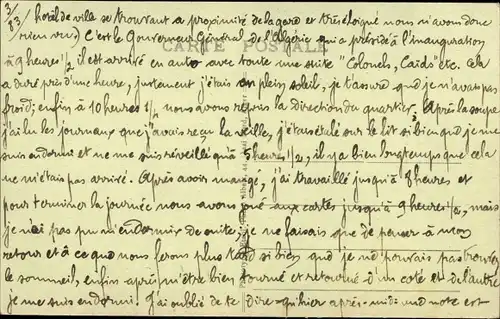 3/83/ hôtel de ville se trouvant a proximité de la gare et très éloigné nous n'avons donc
rien vu) C'est le Gouverneur Général de l'Algérie qui a présidé à l'inauguration
CARTE POSTALE
à 9 heures 1/2 il est arrivé en auto avec toute une suite "Colonels, Caïds" etc. Cela
a duré près d'une heure, justement j'étais en plein soleil, je t'assure que je n'avais pas
froid; enfin à 10 heures 1/2 nous avons repris la direction du quartier. Après la soupe
j'ai lu les journaux que j'avais reçu la veille, j'étais étalé sur le lit si bien que je me
suis endormi et ne me suis réveillé qu'à 5 heures 1/2, il y a bien longtemps que cela
ne m'était pas arrivé. Après avoir mangé, j'ai travaillé jusqu'à 8 heures et
pour terminer la journée nous avons joué aux cartes jusqu'à 9 heures 1/2, mais
je n'ai pas pu m'endormir de suite; je ne faisais que de penser à mon
retour et à ce que nous ferons plus tard si bien que je ne pouvais pas trouver
le sommeil, enfin après m'être bien tourné et retourné d'un coté et de l'autre
je me suis endormi. J'ai oublié de te dire qu'hier après-midi une note est